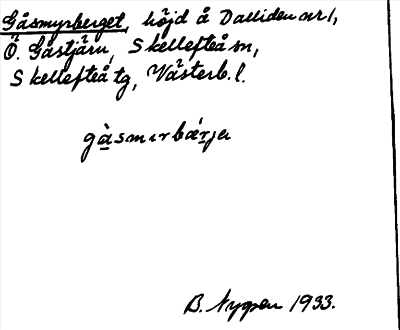 Gåsmyrberget, höjd å Dalliden nr 1,
Ö. Gåstjärn, Skellefteå sn,
Skellefteå tg, Västerb. l.
gàsmɩrbǽrjə
B. Nygren 1933.